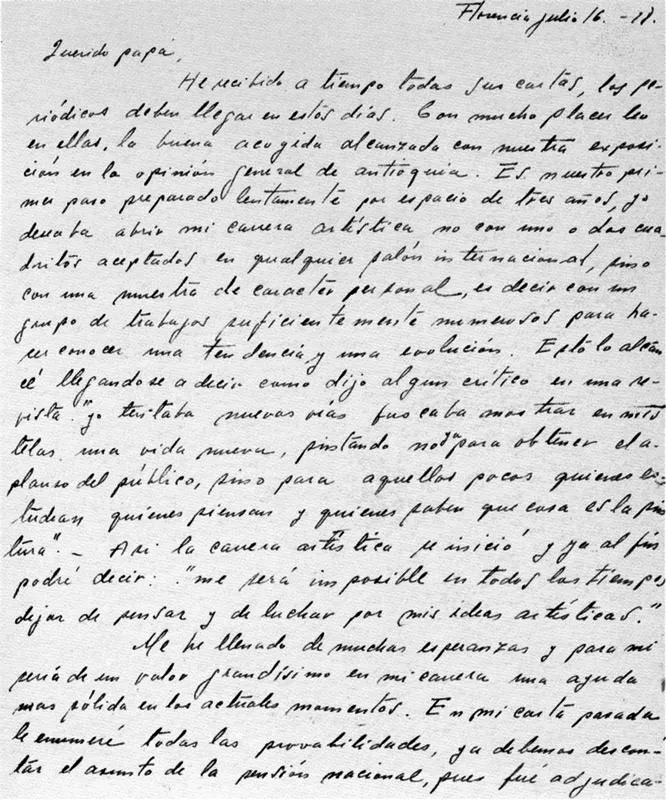 Florencia julio 16. -
Querido papá,
He recibido a tiempo todas sus cartas, los pe-
riódicos deben llegar en estos días. Con mucho placer leo
en ellas, la buena acogida alcanzada con nuestra exposi-
ción en la opinión general de antioquia. Es nuestro pri-
mer paso preparado lentamente por espacio de tres años, yo
deseaba abrir mi carrera artística no con uno o dos cua-
dritos aceptados en qualquier salón internacional, sino
con una muestra de caracter personal, es decir con un
grupo de trabajos suficientemente numerosos para ha-
cer conocer una tendencia y una evolución. Esto lo alcan-
cé llegandose a decir como dijo algun crítico en una re-
vista: "yo tentaba nuevas vias buscaba mostrar en mis
telas una vida nueva, pintando no ya para obtener el a-
plauso del público, sino para aquellos pocos quienes es-
tudian quienes piensan y quienes saben que cosa es la pin
tura". - Asi la carrera artística se inició y ya al fin
podré decir: "me será imposible en todos los tiempos
dejar de pensar y de luchar por mis ideas artísticas."
Me he llenado de muchas esperanzas y para mi
sería de un valor grandísimo en mi carrera una ayuda
mas sólida en los actuales momentos. En mi carta pasada
le enumeré todas las provabilidades, ya debemos descon-
tar el asunto de la pensión nacional, pues fué adjudica-